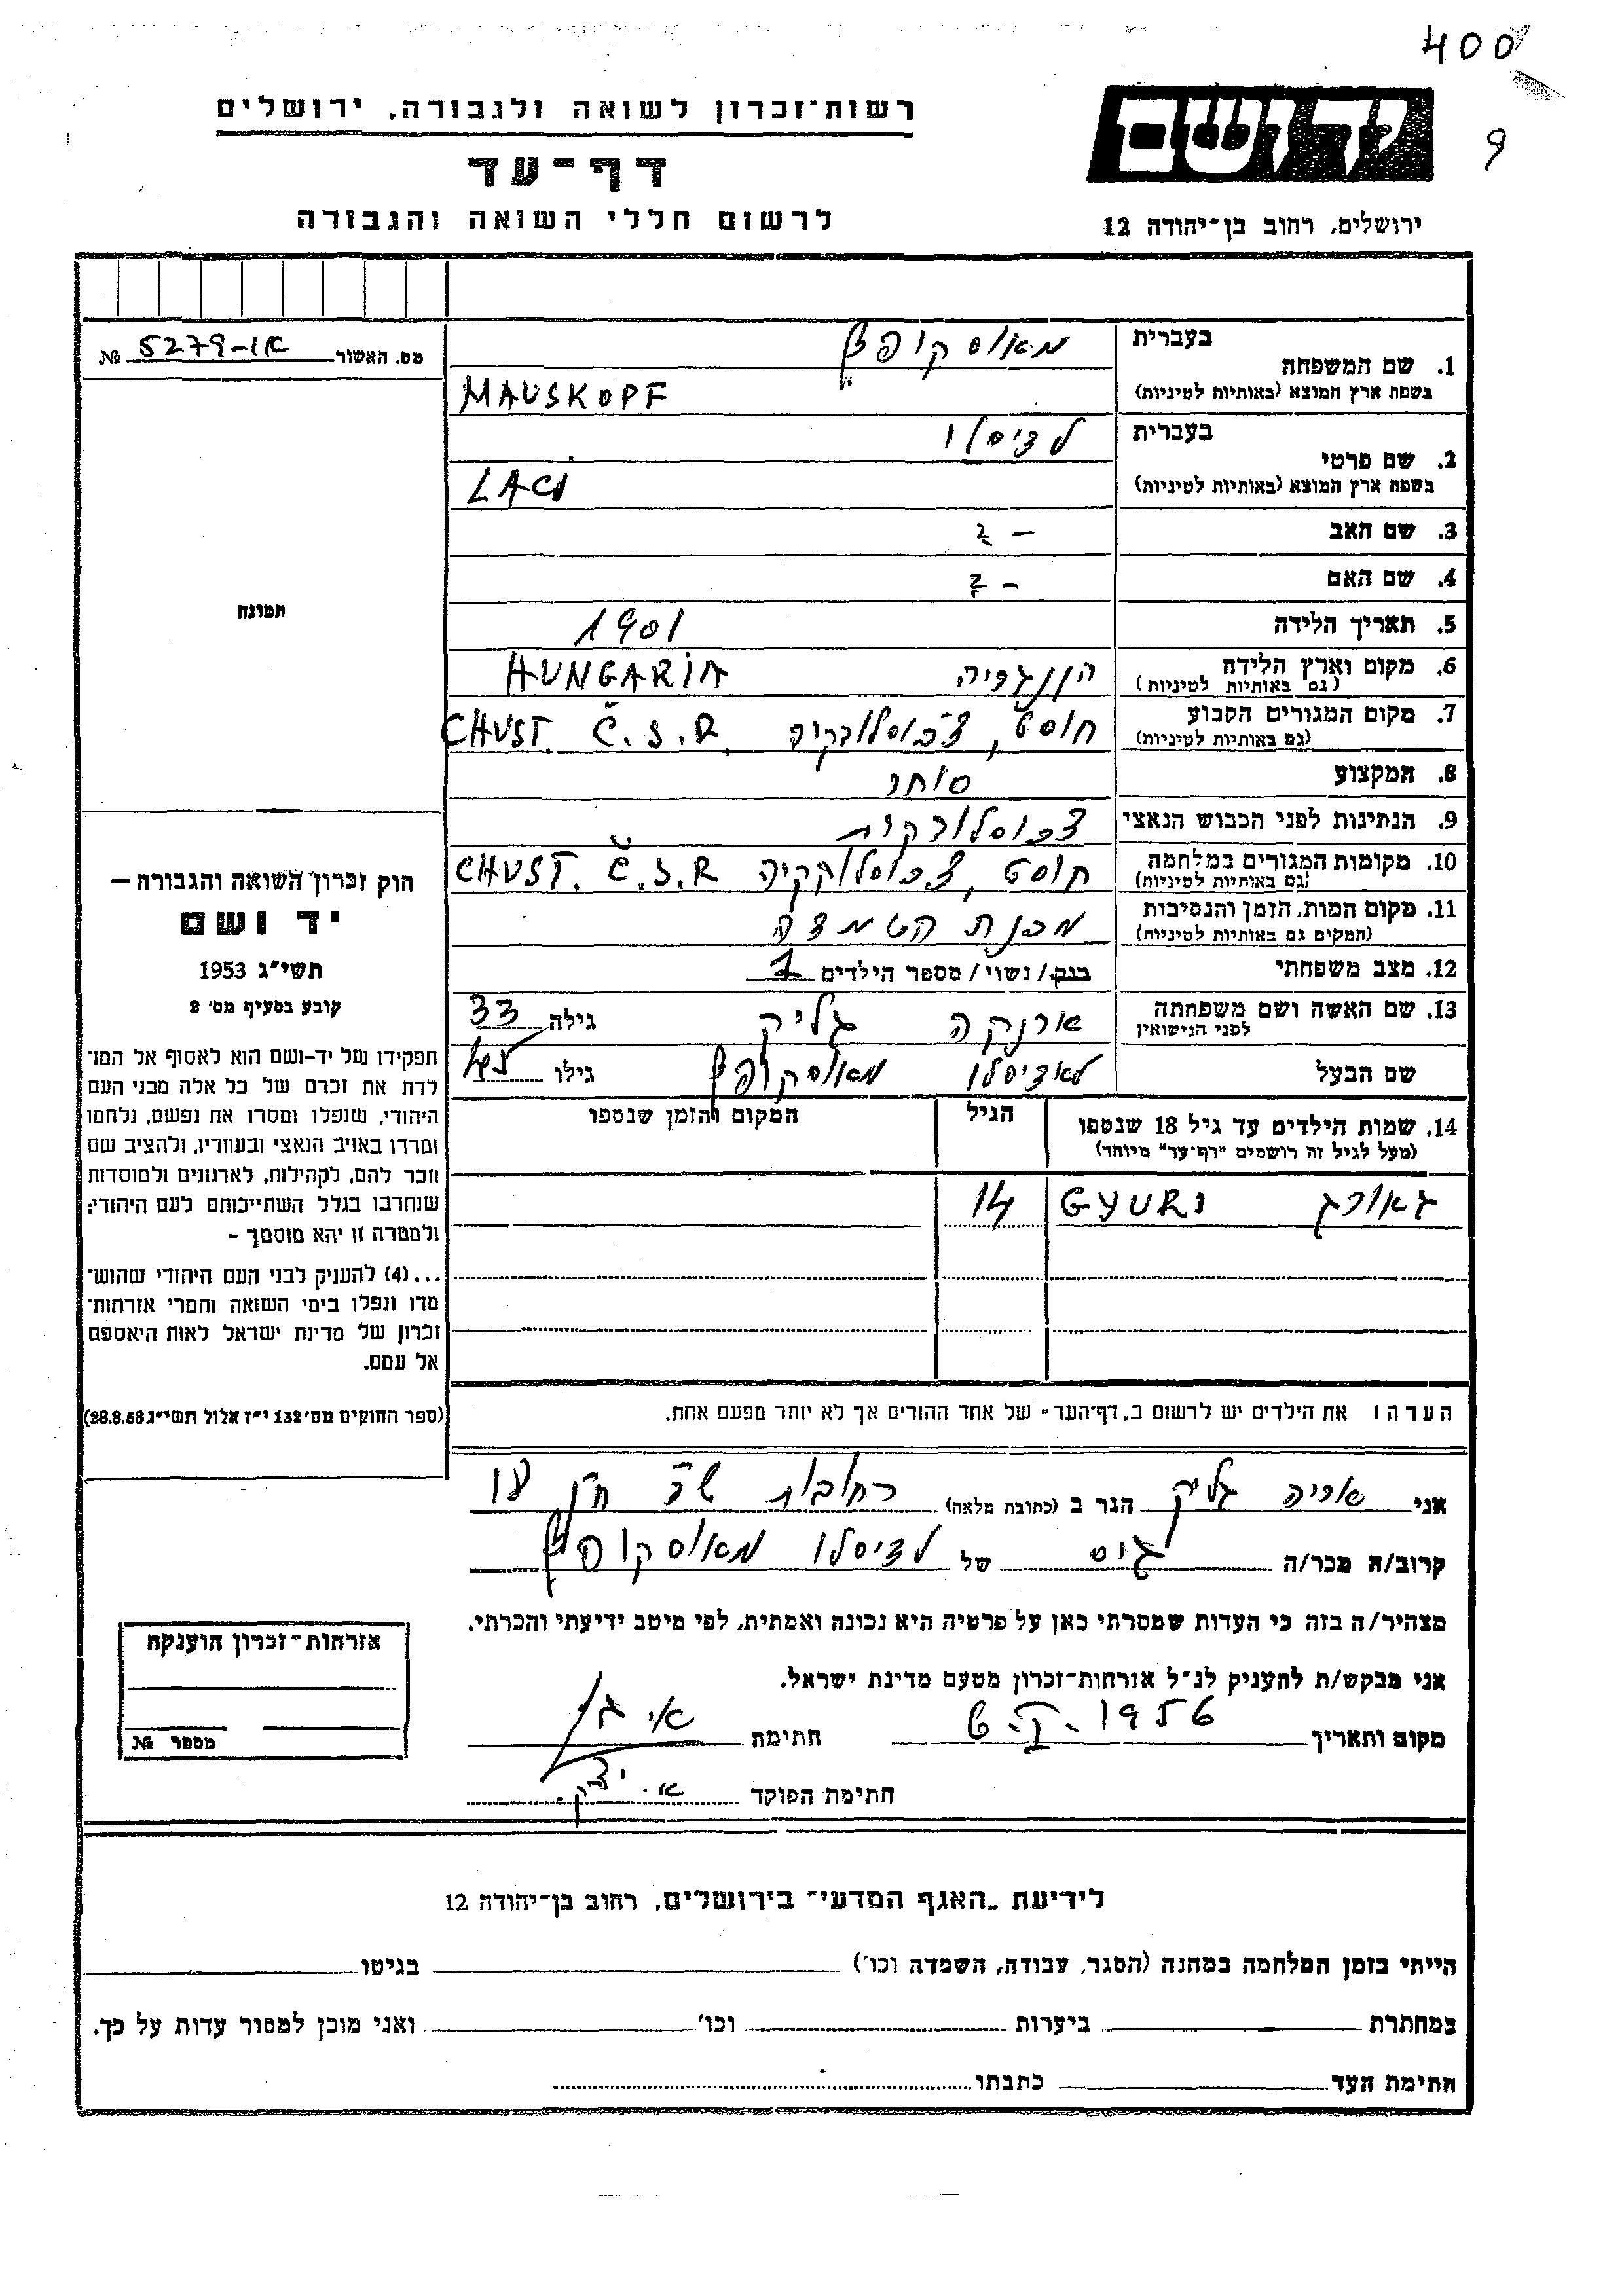 400
9
רשות־זכרון לשואה ולגבורה, ירושלים
דף־עד
לרשום חללי השואה והגבורה
יד ושם
ירושלים, רחוב בן־יהודה 12
מס. האשור 5279-או №
תמונה
1. שם המשפחה בעברית מאוסקופף
בשפת ארץ המוצא (באותיות לטיניות) MAUSKOPF
2. שם פרטי בעברית לציסלו
בשפת ארץ המוצא (באותיות לטיניות) LACI
3. שם האב – ?
4. שם האם – ?
5. תאריך הלידה 1901
6. מקום וארץ הלידה (גם באותיות לטיניות) הונגריה HUNGARIA
7. מקום המגורים הקבוע (גם באותיות לטיניות) חוסט, צ'כוסלובקיה CHUST. Č.S.R.
8. המקצוע סוחר
9. הנתינות לפני הכבוש הנאצי צכוסלובקית
10. מקומות המגורים במלחמה (גם באותיות לטיניות) חוסט, צכוסלובקיה CHUST. Č.S.R
11. מקום המות, הזמן והנסיבות (המקום גם באותיות לטיניות) מחנה השמדה
12. מצב משפחתי רווק/נשוי/מספר הילדים 1
13. שם האשה ושם משפחתה לפני הנישואין ארנקה גליק גילה 33
שם הבעל לאציסלו מאוסקופף גילו
14. שמות הילדים עד גיל 18 שנספו (מעל לגיל זה רושמים "דף־עד" מיוחד) הגיל המקום והזמן שנספו
גאורג GYURI 14
הערה: את הילדים יש לרשום ב„דף־העד״ של אחד ההורים אך לא יותר מפעם אחת.
חוק זכרון השואה והגבורה –
יד ושם
תשי״ג 1953
קובע בסעיף מס׳ 2
תפקידו של יד-ושם הוא לאסוף אל המו־
לדת את זכרם של כל אלה מבני העם
היהודי, שנפלו ומסרו את נפשם, נלחמו
ומרדו באויב הנאצי ובעוזריו, ולהציב שם
וזכר להם, לקהילות, לארגונים ולמוסדות
שנחרבו בגלל השתייכותם לעם היהודי;
ולמטרה זו יהא מוסמך –
...(4) להעניק לבני העם היהודי שהוש־
מדו ונפלו בימי השואה והמרי אזרחות־
זכרון של מדינת ישראל לאות היאספם
אל עמם.
(ספר החוקים מס׳ 132 י״ז אלול תשי״ג 28.8.53)
אני אריה גליק הגר ב (כתובת מלאה) רחובות
קרוב/ה מכר/ה גיס של לציסלו מאוסקופף
מצהיר/ה בזה כי העדות שמסרתי כאן על פרטיה היא נכונה ואמתית, לפי מיטב ידיעתי והכרתי.
אני מבקש/ת להעניק לנ״ל אזרחות־זכרון מטעם מדינת ישראל.
מקום ותאריך 6.X.1956 חתימת
חתימת הפוקד
אזרחות־זכרון הוענקה
מספר №
לידיעת „האגף המדעי״ בירושלים, רחוב בן־יהודה 12
הייתי בזמן המלחמה במחנה (הסגר, עבודה, השמדה וכו׳) בגיטו
במחתרת ביערות וכו׳ ואני מוכן למסור עדות על כך.
חתימת העד כתבתו